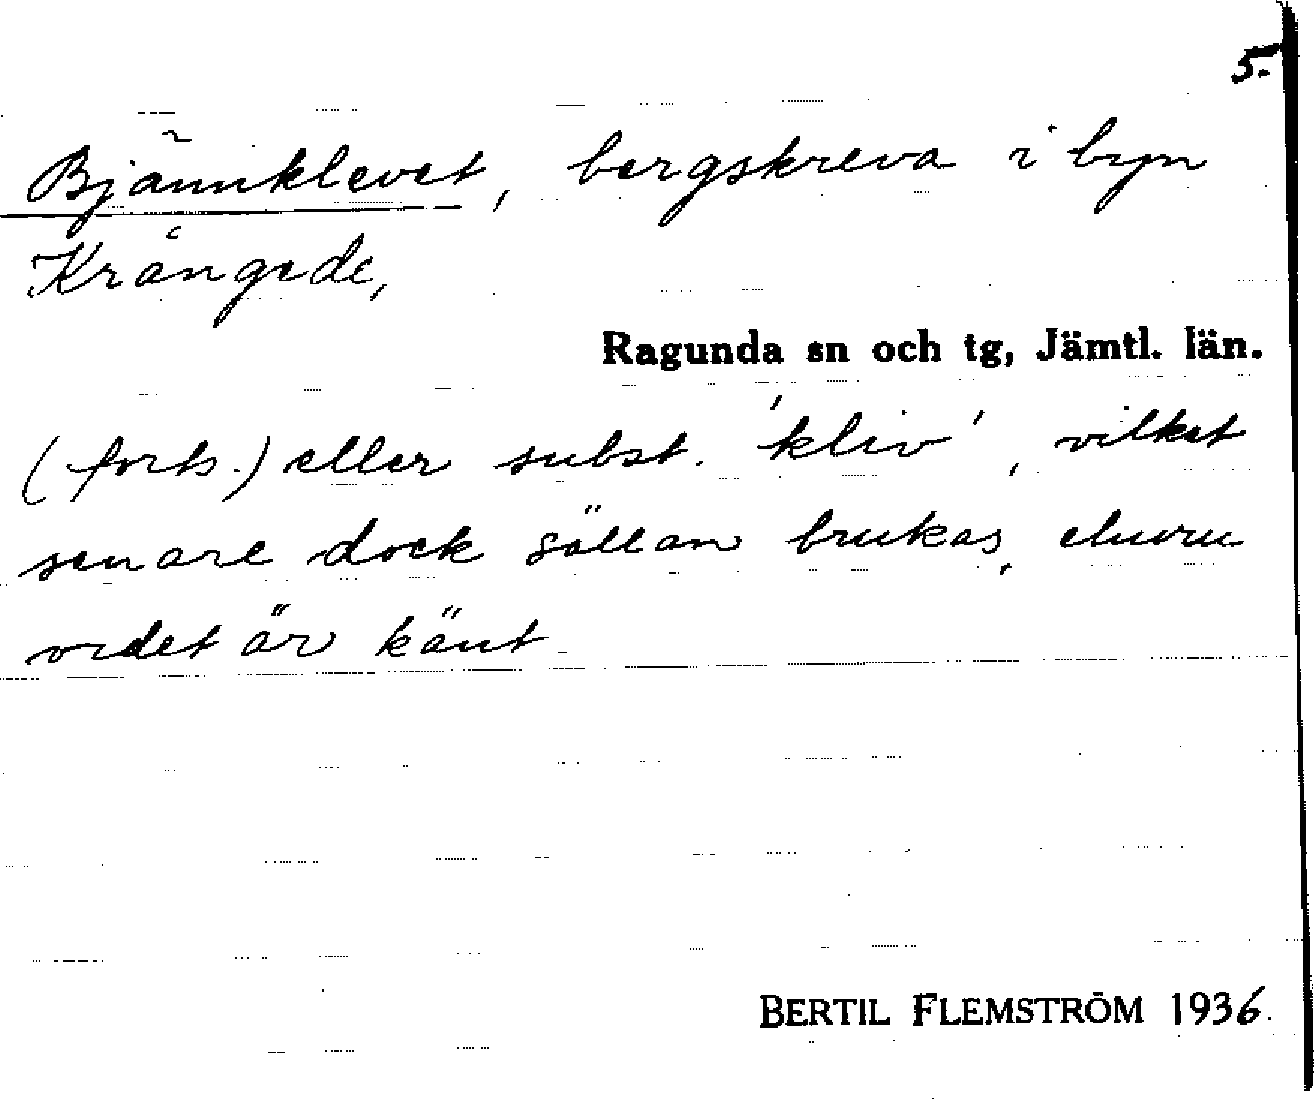 5.
Bjännklevet, bergskreva i byn
Krångede,
Ragunda sn och tg, Jämtl. län.
(forts.) eller subst. 'kliv', vilket
senare dock sällan brukas, ehuru
videt är känt.
BERTIL FLEMSTRÖM 1936.